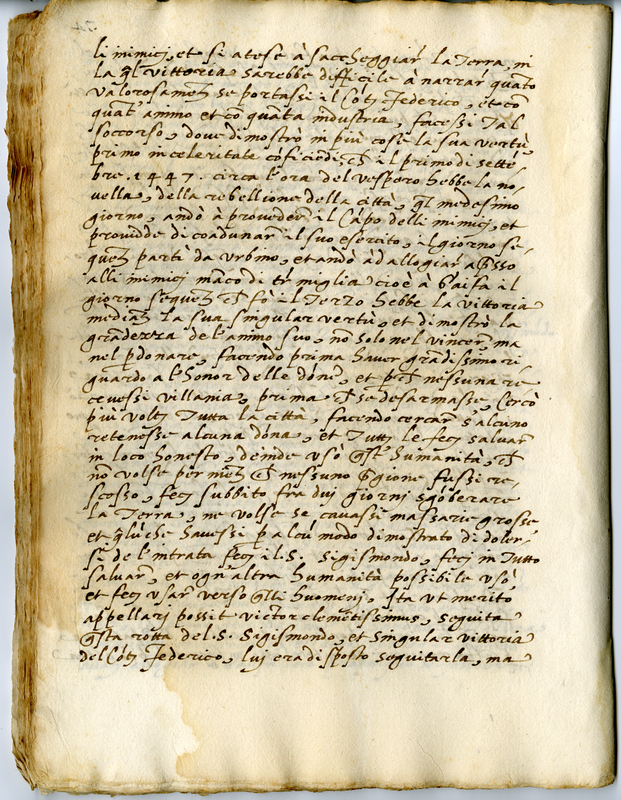 li inimicj, et si atese à saccheggiar la Terra, in
la ql vittoria sarebbe difficile à narrar quāto
valorosamen se portassi il Cōtj Federico, et cō
quāt' animo et cō quanta industria, facessi Tal
soccorso, dove dimostrò in più cose la sua vertù,
primo in celeritate il primo di sette-
bre .1447. circa l'ora del vespero hebbe la no-
vella, della rebellione della città, ql medesimo
giorno, andò à proveder il Cāpo delli inimicj, et
providde di coadunar il suo esercito, il giorno se-
quen partì da Urbino, et andò ad allogiar apsso
alli inimicj māco di tr miglia cioè à il
giorno sequen ch fò il Terzo hebbe la vittoria
median la sua singular vertù, et dimostrò la
grādezza de l'animo suo, nō solo nel vincer, ma
nel pdonare, facendo prima haver grādissimo ri-
guardo a l'honor delle dōne, et pch nessuna re-
cevessi villania, prima ch se desarmasse, Cercò
più voltj Tutta la città, facendo cercar s'alcuno
retenesse alcuna dōna, et Tuttj le fecj salvar
in loco honesto, deinde usò qst' humanità, ch
nō volse permen ch nessuno pgione fussi re-
scosso, fecj subbito fra dui giorni sgōberare
la Terra, ne volse se cavassi massarie grosse
et qlli che havessi p alcū modo dimostrato di doler-
si de l'intrata fecj il S. Sigismondo, fecj in Tutto
salvar, et ogn'altra humanità possibile usò,
et fecj usar verso qlli huomenj, Ita ut merito
appellarj possit victor clemētissimus, seguita
qsta rotta del S. Sigismondo, et singular vittoria
del Cōtj Federico, luj era disposto seguitarla, ma